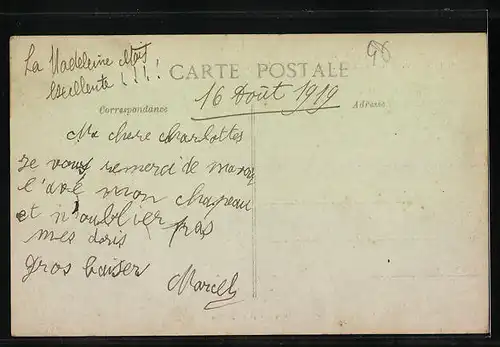 La Madeleine était
excellente !!!!
96
CARTE POSTALE
Correspondance
Adresse
16 Août 1919
Ma chere charlottes
Je vous remerci de
l'avé mon chapeau
et n'oublier pas
mes
gros baiser
Marcel